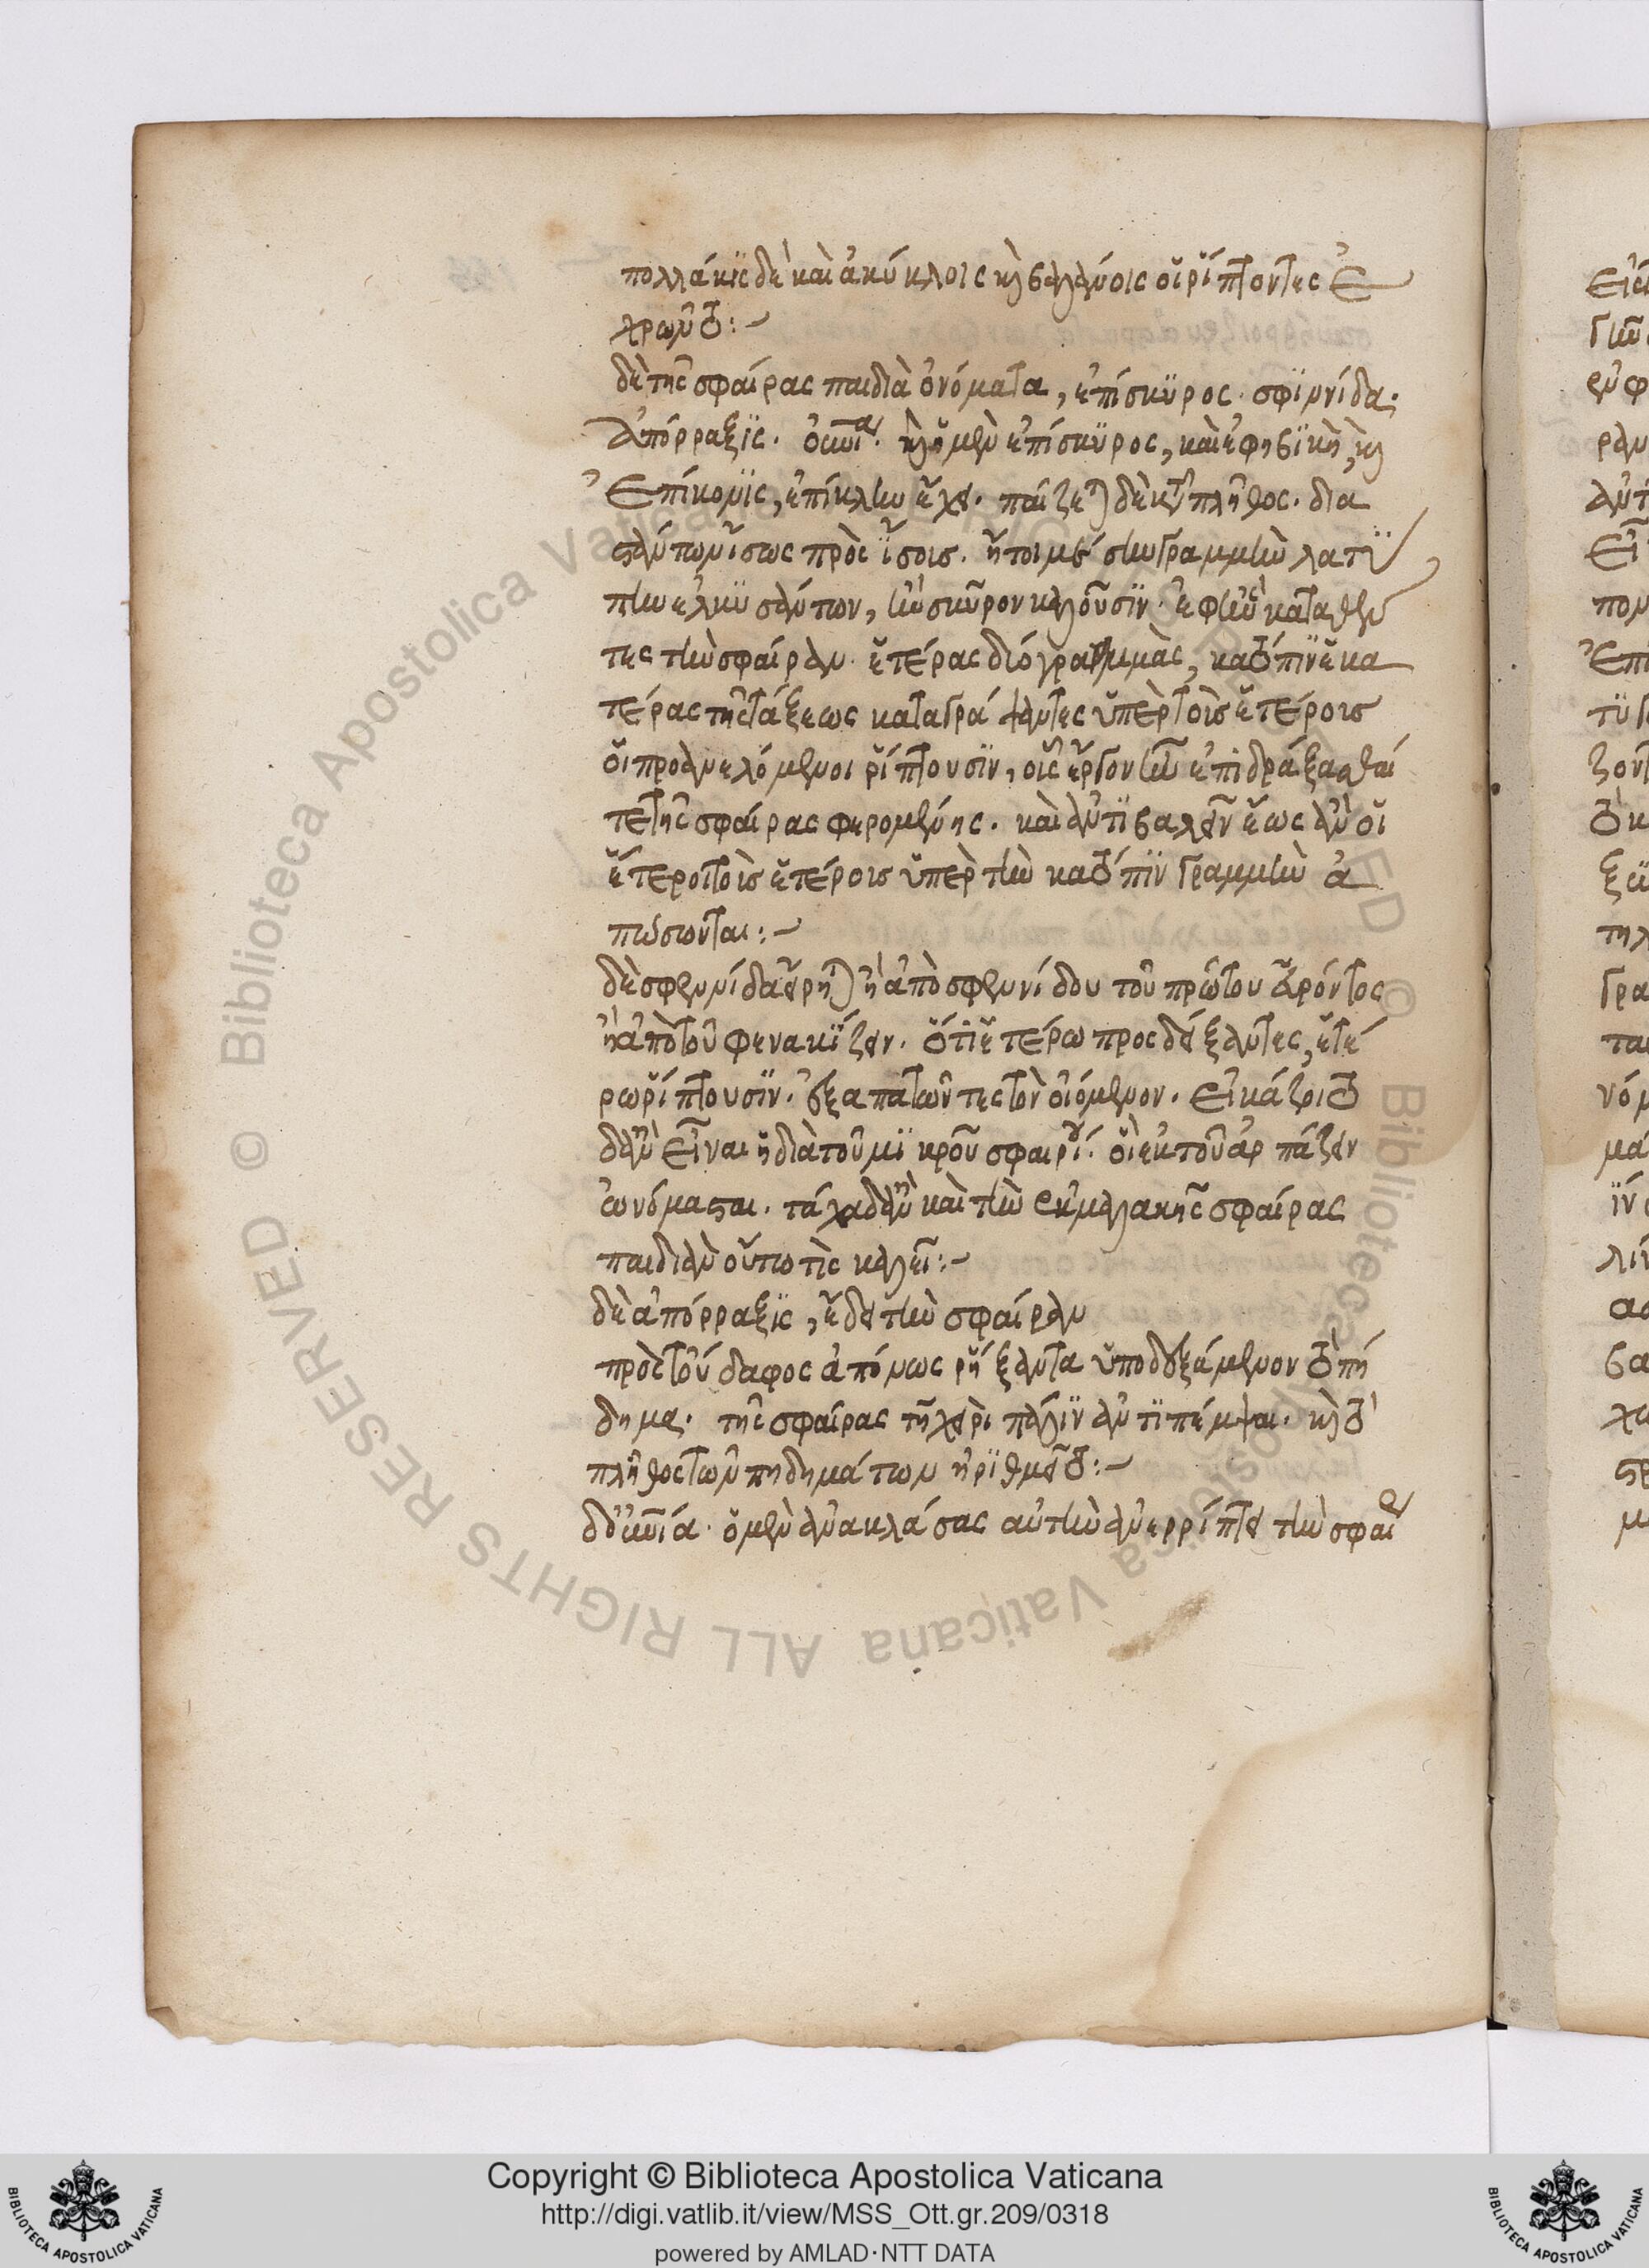 πολλάκϊς δὲ καὶ ἀκύκλοις κὶ βαλάνοις οἱ ῥίπτοντες ἐ
χρῶντο:~
δὲ τῆς σφαίρας παιδιὰ ὀνόματα, ἐπίσκϋρος. σφϊνίδα.
ἀπόρραξϊς. κὶ ἡ μὲν ἐπίσκϋρος, καὶ ἐφηβϊκὴ, κὶ
Ἐπίκοινϊς, ἐπίκλην ἔχει. παίζεται δὲ κατὰ πλῆθος. δια
στάντων ἴσως πρὸς ἴσοις. μέσην γραμμὴν λατϋ
πην ἑλκϋσάντων, ἣν σκῦρον καλοῦσϊν. ἐφ ἣν καταθέν
τες τὴν σφαῖραν. ἑτέρας δύο γραμμὰς, κατόπϊν ἑκα
τέρας τῆς τάξεως καταγράψαντες ὑπὲρ τοῖς ἑτέροις
οἱ προανελόμενοι ῥίπτουσϊν, οἷς ἔργον ἦν ἐπιδράξασθαί
τε τῆς σφαίρας φερομένης. καὶ ἀντϊβαλεῖν ἕως ἂν οἱ
ἕτεροι τοῖς ἑτέροις ὑπὲρ τὴν κατόπϊν γραμμὴν ἀ
πώσωνται:~
δὲ σφενίδα εἴρηται ἢ ἀπὸ σφενίδου τοῦ πρώτου εὑρόντος
ἢ ἀπὸ τοῦ φενακΐζειν. ὅτι ἑτέρω προςδείξαντες, ἑτέ
ρω ῥίπτουσϊν. ἐξαπατῶντες τὸν οἰόμενον. εἰκάζοιτο
δ᾽ ἂν εἶναι ἡ διὰ τοῦ μϊκροῦ σφαιρί. ὃ ἐκ τοῦ ἁρπάζειν
ὠνόμασται. τάχα δ᾽ ἂν καὶ τὴν ἐκ μαλακῆς σφαίρας
παιδιὰν οὕτω τὶς καλεῖ:~
δὲ ἀπόρραξϊς, ἔδει τὴν σφαῖραν
πρὸς τοὔδαφος εὐτόνως ῥήξαντα ὑποδεξάμενον τὸ πή
δημα. τῆς σφαίρας τῇ χειρὶ πάλϊν ἀντϊπέμψαι. κὶ τὸ
πλῆθος τῶν πηδημάτων ἠρϊθμεῖτο:~
δ᾽ οὐρανία. ὁ μὲν ἀνακλάσας αὑτὸν ἀνερρίπτει τὴν σφαῖρ